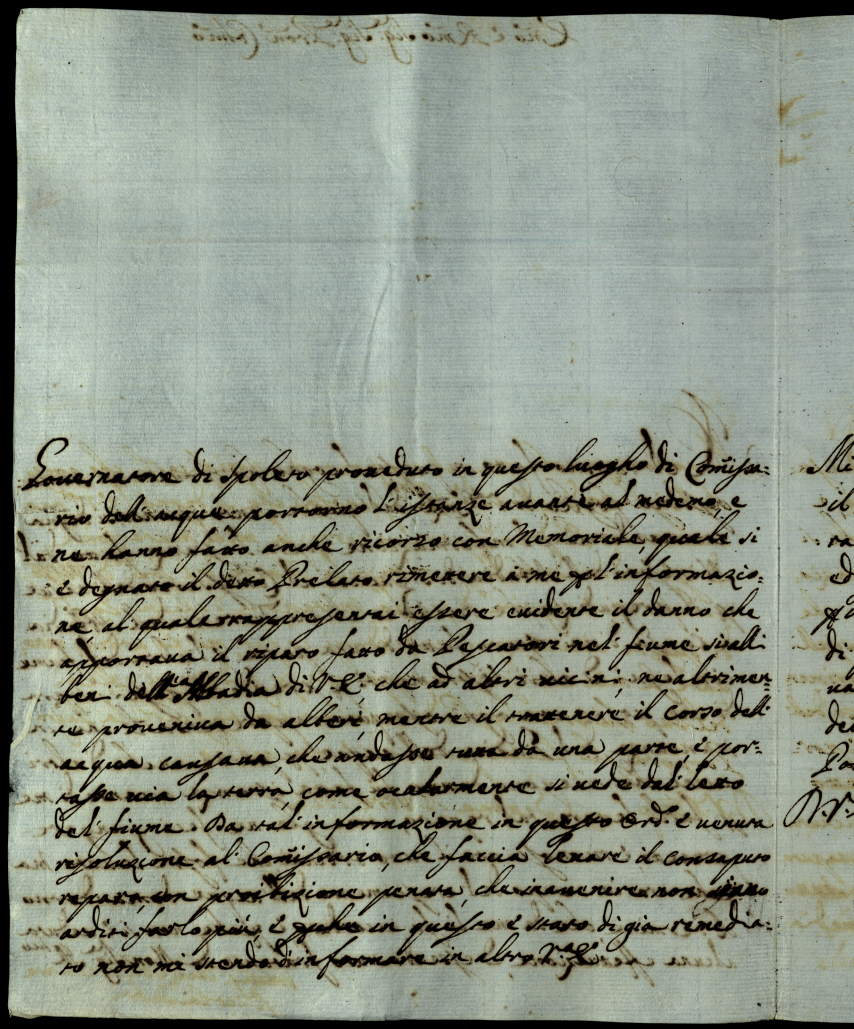 Governatore di Spoleto proueduto in questo luogho di Comissa=
rio dell'acque portorno l'istanze auante al medemo, e
ne hanno fatto anche ricorso con Memoriale, quale si
è degnato il detto Prelato rimettere à me pl'informazio=
ne, al quale rappresentai essere euidente il danno che
apportaua il riparo fatto da Pescatori nel fiume si alli
beni dell'Abbadia di V.E. che ad altri uicini, ne altrimen=
te proueniua da alberi, mentre il trattenere il corso dell'
acqua causaua, che andasse tutta da una parte, e por=
tasse uia la terra, come ocularmente si uede dal letto
del fiume. Da tal'informazione in questo Ord.º è uenuta
risoluzione al Comissario, che faccia leuare il consaputo
reparo, con proibizione penata, che in auenire non
arditi farlo più, e in questo è stato di già remedia=
to non mi stendo d'informare in altro V.E.
Mi
il
ra
ed
di
ua
de
Po